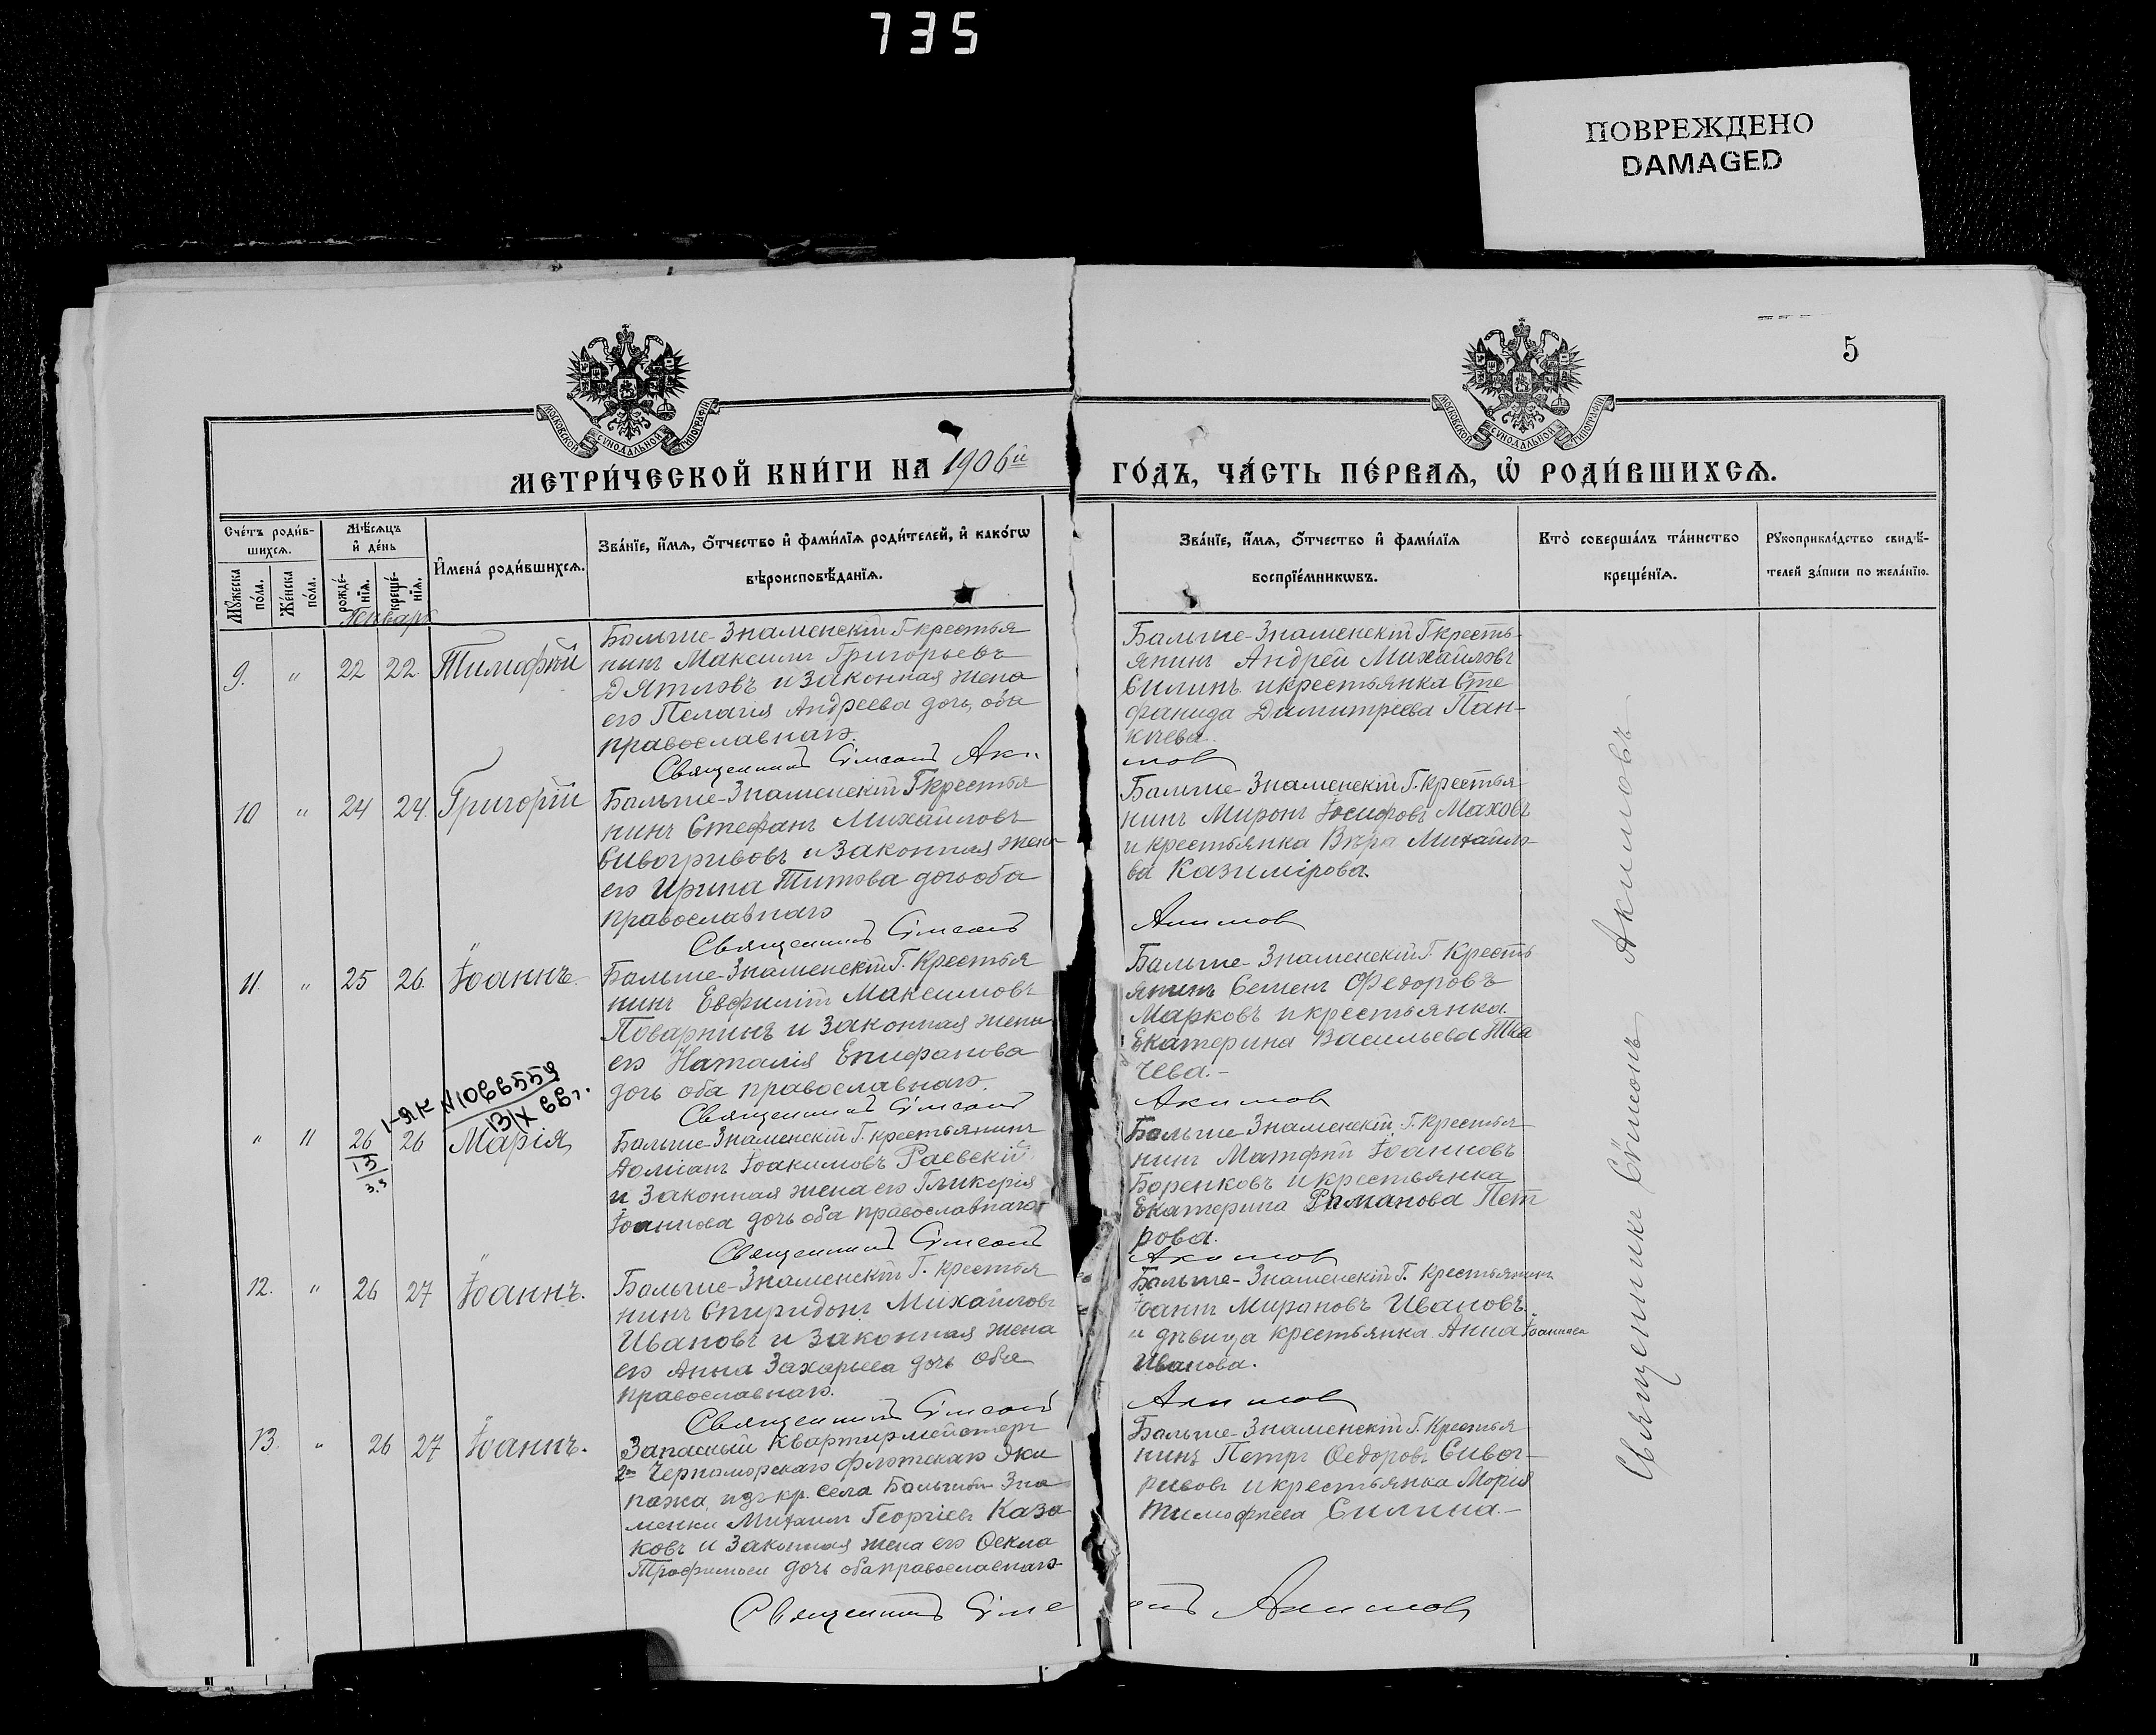 735
ПОВРЕЖДЕНО
DAMAGED
5
МОСКОВСКОЙ СѴНОДАЛЬНОЙ ТИПОГРАФІИ
МОСКОВСКОЙ СѴНОДАЛЬНОЙ ТИПОГРАФІИ
МЕТРИ́ЧЕСКОЙ КНИ́ГИ НА 1906й ГО́ДЪ, ЧА́СТЬ ПЕ́РВАѦ, Ѡ҆ РОДИ́ВШИХСѦ.
Сче́тъ роди́в-
шихсѧ.
Мꙋ́жеска по́ла.
Же́нска по́ла.
Мѣ́сѧцъ
и҆ де́нь
рожде́-
нїѧ.
креще́-
нїѧ.
И҆мена́ роди́вшихсѧ.
Зва́нїе, и҆́мѧ, ѻ҆́тчество и҆ фами́лїѧ роди́телей, и҆ како́гѡ
вѣроисповѣ́данїѧ.
Зва́нїе, и҆́мѧ, ѻ҆́тчество и҆ фами́лїѧ
воспрїе́мникѡвъ.
Кто̀ соверша́лъ та́инство
креще́нїѧ.
Рꙋкоприкла́дство свидѣ́-
телей за́писи по жела́нїю.
Генварь
9. " 22 22. Тимофей
Больше-Знаменскій Г крестья
нинъ Максимъ Григорьевъ
Дятловъ и законная жена
его Пелагия Андреева дочь, оба
православнаго.
Больше-Знаменскій Г крестъ-
янинъ Андрей Михайловъ
Силинъ и крестьянка Сте
фанида Димитреева Пан-
кнева.
Священникъ Сѵмеонъ Аки
мов
10 " 24 24. Григорій
Больше-Знаменскій Г крестья
нинъ Стефанъ Михайловъ
Сивогривовъ и законная жена
его Ирина Титова дочь оба
православнаго
Больше-Знаменскій Г. крестья-
нинъ Миронъ Іосифовъ Маховъ
и крестьянка Вѣра Михайло-
ва Казимірова.
Священникъ Сѵмеонъ
Акимов
11. " 25 26. Іоаннъ.
Больше-Знаменскій Г. Крестья
нинъ Евфимій Максимовъ
Поваркинъ и законная жена
его Наталія Епифанова
дочь оба православнаго.
Больше-Знаменскій Г. Кресть
янинъ Семенъ Федоровъ
Марковъ и крестьянка
Екатерина Васильева Тка
чева.-
Священникъ Сѵмеонъ
Акимов
1-ЯК №1066559
13/X 66г.
" 11 26 26 Марія
13
3.3
Больше-Знаменскій Г. крестьянинъ
Доміанъ Іоакимовъ Раевскій
и законная жена его Гликерія
Іоаннова дочь оба православнаго
Больше Знаменскій Г. крестья
нинъ Матфій Іоанновъ
Боренковъ и крестьянка
Екатерина Романова Пет
рова.
Священникъ Сѵмеонъ
Акимов
12. " 26 27 Іоаннъ.
Больше-Знаменскій Г. крестья
нинъ Спиридонъ Михайловъ
Ивановъ и законная жена
его Анна Захарьева дочь оба
православнаго.
Больше-Знаменскій Г. крестьянинъ
Іоаннъ Мироновъ Ивановъ
и дѣвица крестьянка Анна Іоаннова
Иванова.
Священникъ Сѵмеонъ
Акимов
13. " 26 27 Іоаннъ.
Запасный Квартирмейстеръ
2го Черноморскаго флотскаго Эки
пажа, изъ кр. села Большой Зна
менки Михаилъ Георгіевъ Каза
ковъ и законная жена его Ѳекла
Трофимова дочь оба православнаго
Больше-Знаменскій Г. Крестья
нинъ Петръ Ѳедоровъ Сивог-
ривовъ и крестьянка Марія
Тимофеева Силина.-
Священникъ Сѵме
онъ Акимов
Священникъ Сѵмеонъ Акимовъ